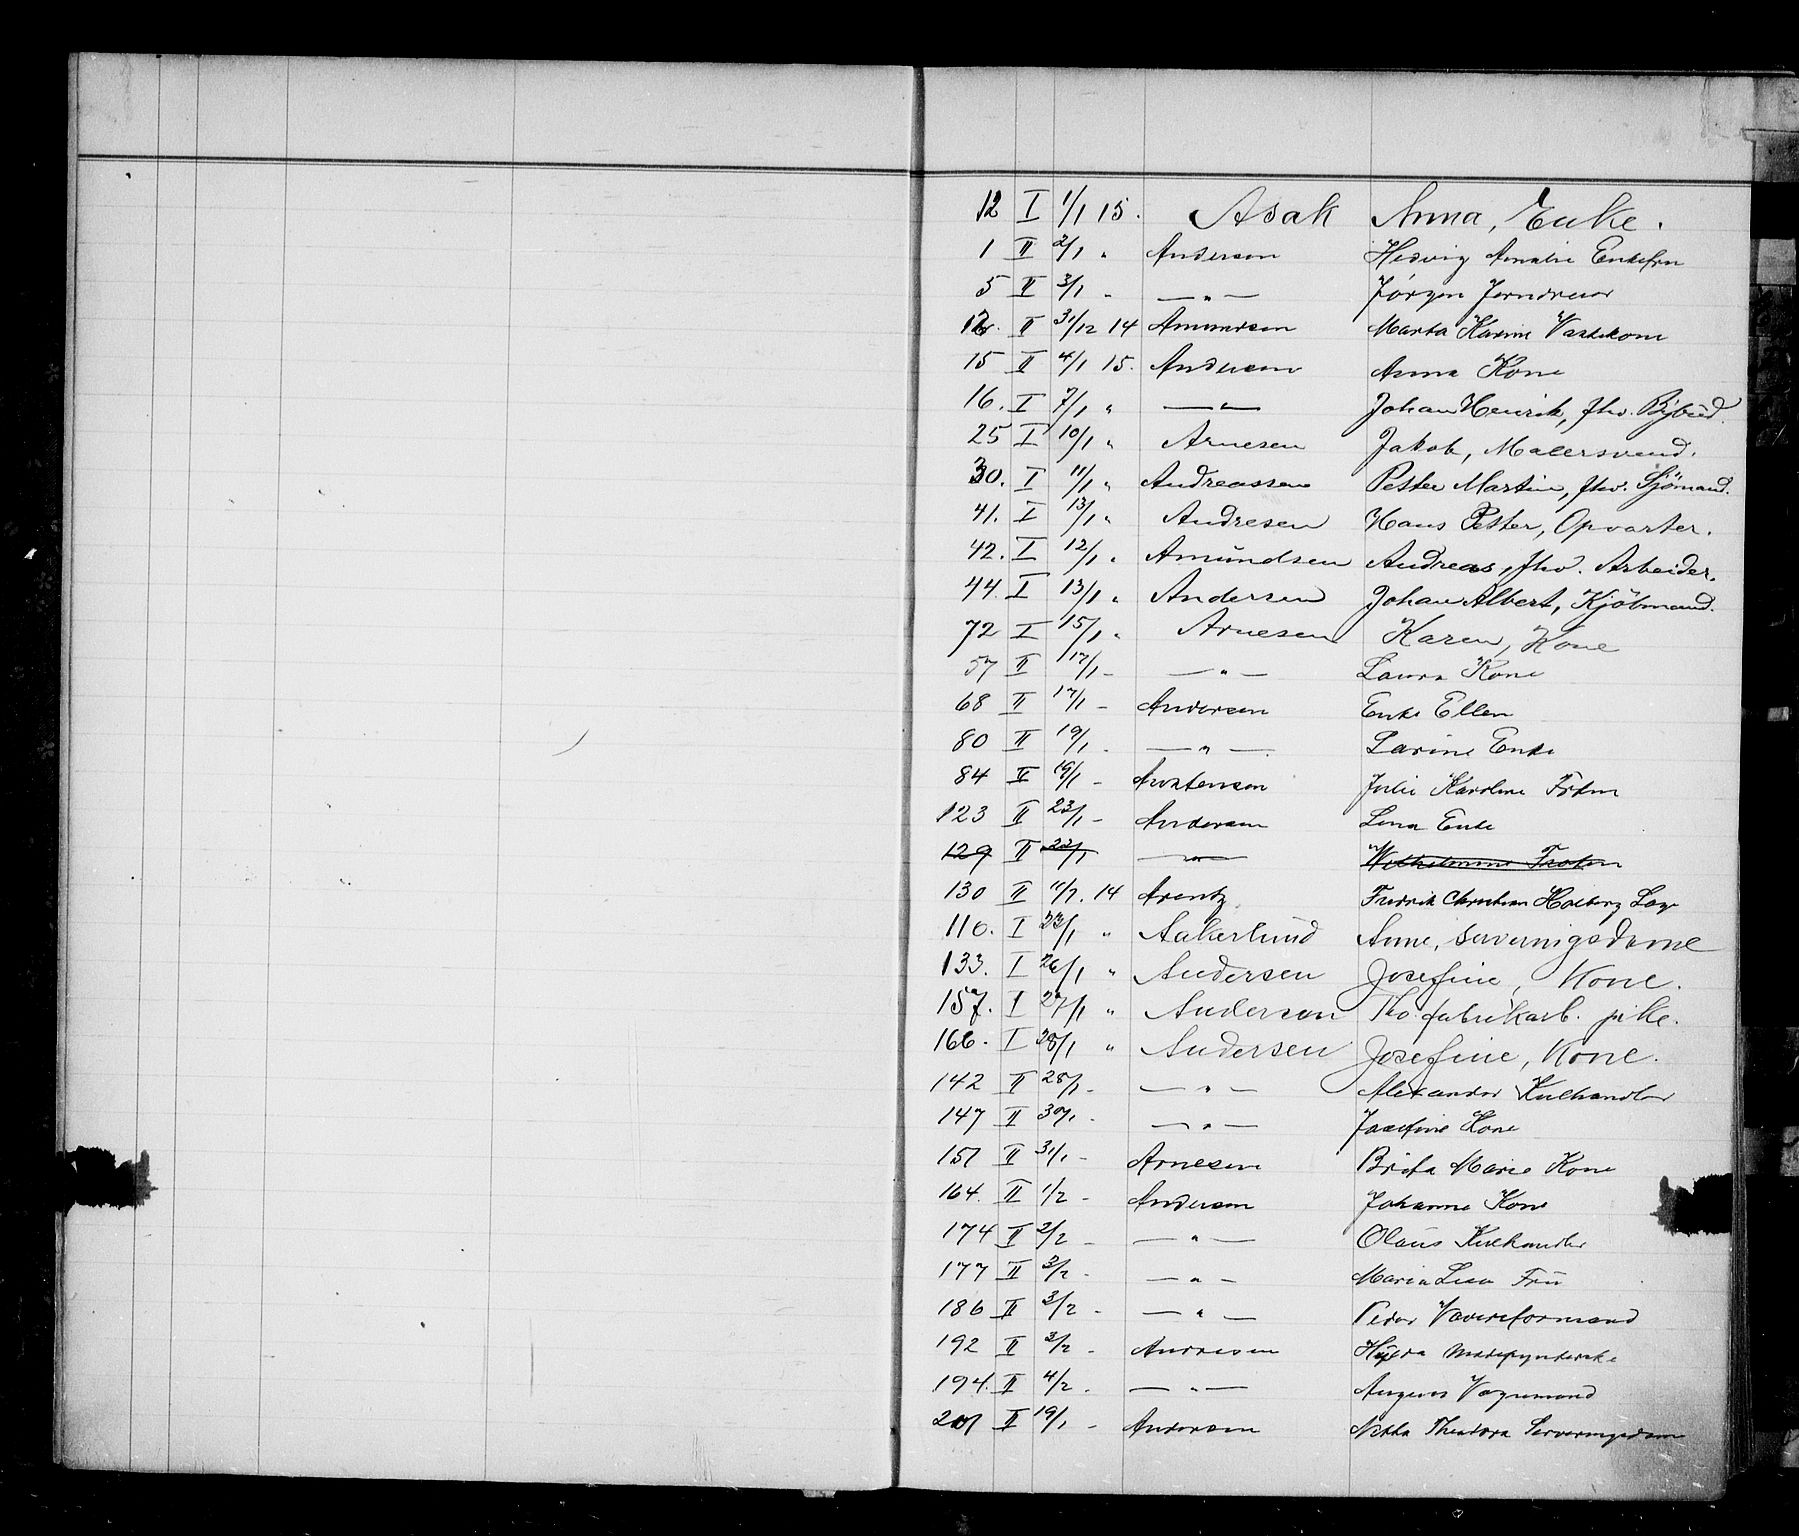 12 I 1/1 15. Asak Anna, Enke.
1 II 2/1 " Andersen Hedvig Amalie Enkefru
5 II 3/1 " —"— Jørgen Jerndreier
12. II 31/12 14 Amundsen Marta Karine Vaskekone
15 II 4/1 15. Andersen Anna Kone
16. I 7/1 " —"— Johan Henrik, fhv. Bybud.
25 I 10/1 " Arnesen Jakob, Malersvend.
30. I 11/1 " Andreassen Petter Martin, fhv. Sjömand.
41. I 13/1 " Andresen Hans Petter, Opvarter.
42. I 12/1 " Amundsen Andreas, fhv. Arbeider.
44. I 13/1 " Andersen Johan Albert, Kjöbmand.
72 I 15/1 " Arnesen Karen, Kone
57 II 17/1 - —"— Laura Kone
68 II 17/1 - Andersen Enke Ellen
80 II 19/1 - —"— Larine Enke
84 II 19/1 - Julie Karoline Frøken
123 II 23/1 - Andersen Lina Enke
129 II 22/1 —"— Wilhelmine Frøken
130 II 11/7. 14 Arentz Fredrik Christian Holberg
110. I 23/1 " Aakerlund Anne, serveringsdame
133. I 26/1 " Andersen Josefine, Kone.
157. I 27/1 " Anderson fabrikarb. pike.
166. I 28/1 " Andersen Josefine, Kone.
142 II 28/1 - —"— Alexander Kulhandler
147 II 30/1 - —"— Josefine Kone
151 II 31/1 - Arnesen Brita Marie Kone
164. II 1/2 - Andersen Johanne Kone
174 II 2/2 - —"— Olaus Kulhandler
177 II 3/2 - —"— Maria Lisa Fru
186 II 3/2 - —"— Peder Væverformand
192 II 3/2 - Andresen Motepynterske
194. II 4/2 - —"— Vognmand
201 II 19/1 - Andersen Netta Theodora Serveringsdame